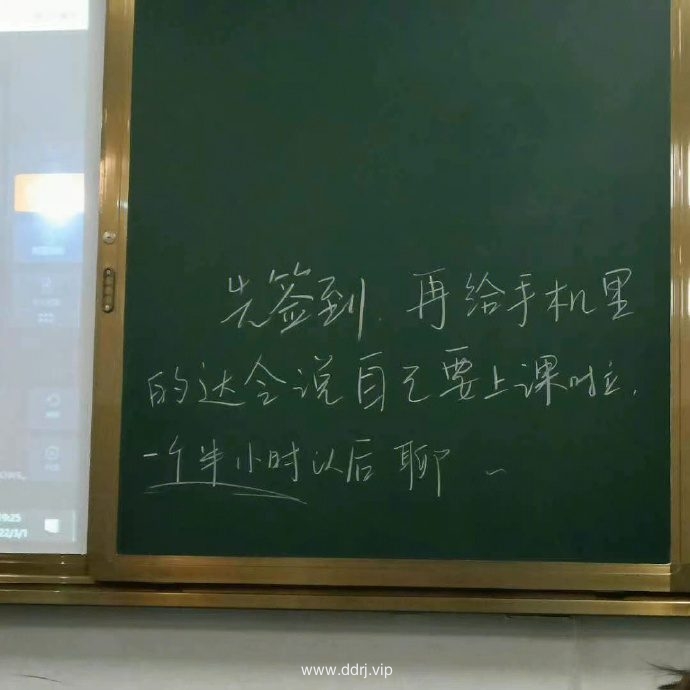 先签到. 再给手机里
的达令说自己要上课啦.
一个半小时以后聊 ~
9:25
22/3/1
www.ddrj.vip